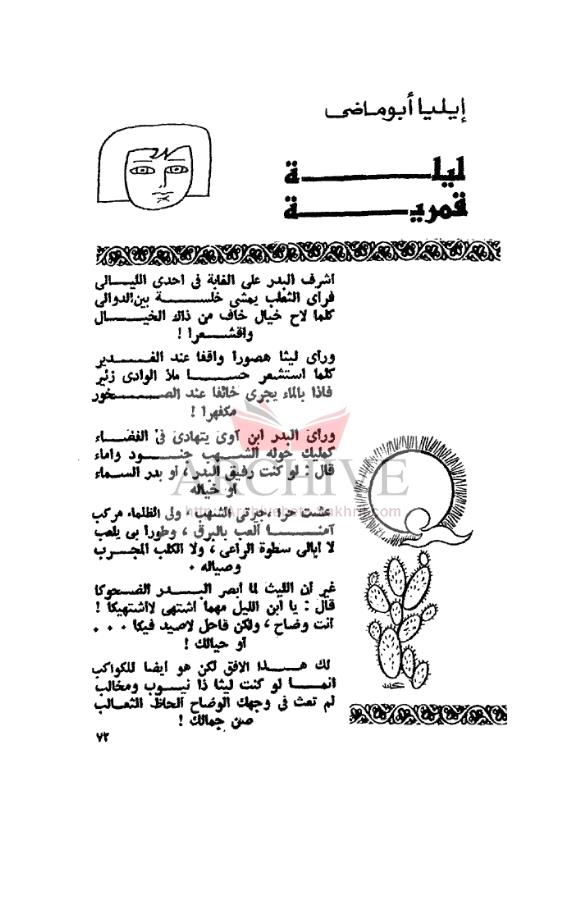 إيليا أبوماضى
ليلة
قمرية
أشرف البدر على الغابة فى احدى الليالى
فرأى الثعلب يمشى خلسة بين الدوالى
كلما لاح خيال خاف من ذاك الخيال
واقشعرا !
ورأى ليثا هصورا واقفا عند الغدير
كلما استشعر حسا ملأ الوادى زئير
فاذا بالماء يجرى خائفا عند الصخور
مكفهرا !
ورأى البدر ابن آوى يتهادى فى الفضاء
كمليك حوله الشهب جنود واماء
قال : لو كنت رفيق البدر ، أو بدر السماء
أو خياله
عشت حرا ، جيرتى الشهب ، ولى الظلماء مركب
آمنا ألعب بالبرق ، وطورا بى يلعب
لا ابالى سطوة الراعى ، ولا الكلب المجرب
وصياله .
غير أن الليث لما أبصر البدر الضحوكا
قال : يا ابن الليل مهما أشتهى لااشتهيكا !
أنت وضاح ، ولكن قاحل لاصيد فيكا . . .
أو حيالك !
لك هذا الافق لكن هو أيضا للكواكب
انما لو كنت ليثا ذا نيوب ومخالب
لم تعث فى وجهك الوضاح ألحاظ الثعالب
صن جمالك !
٧٢
ARCHIVE